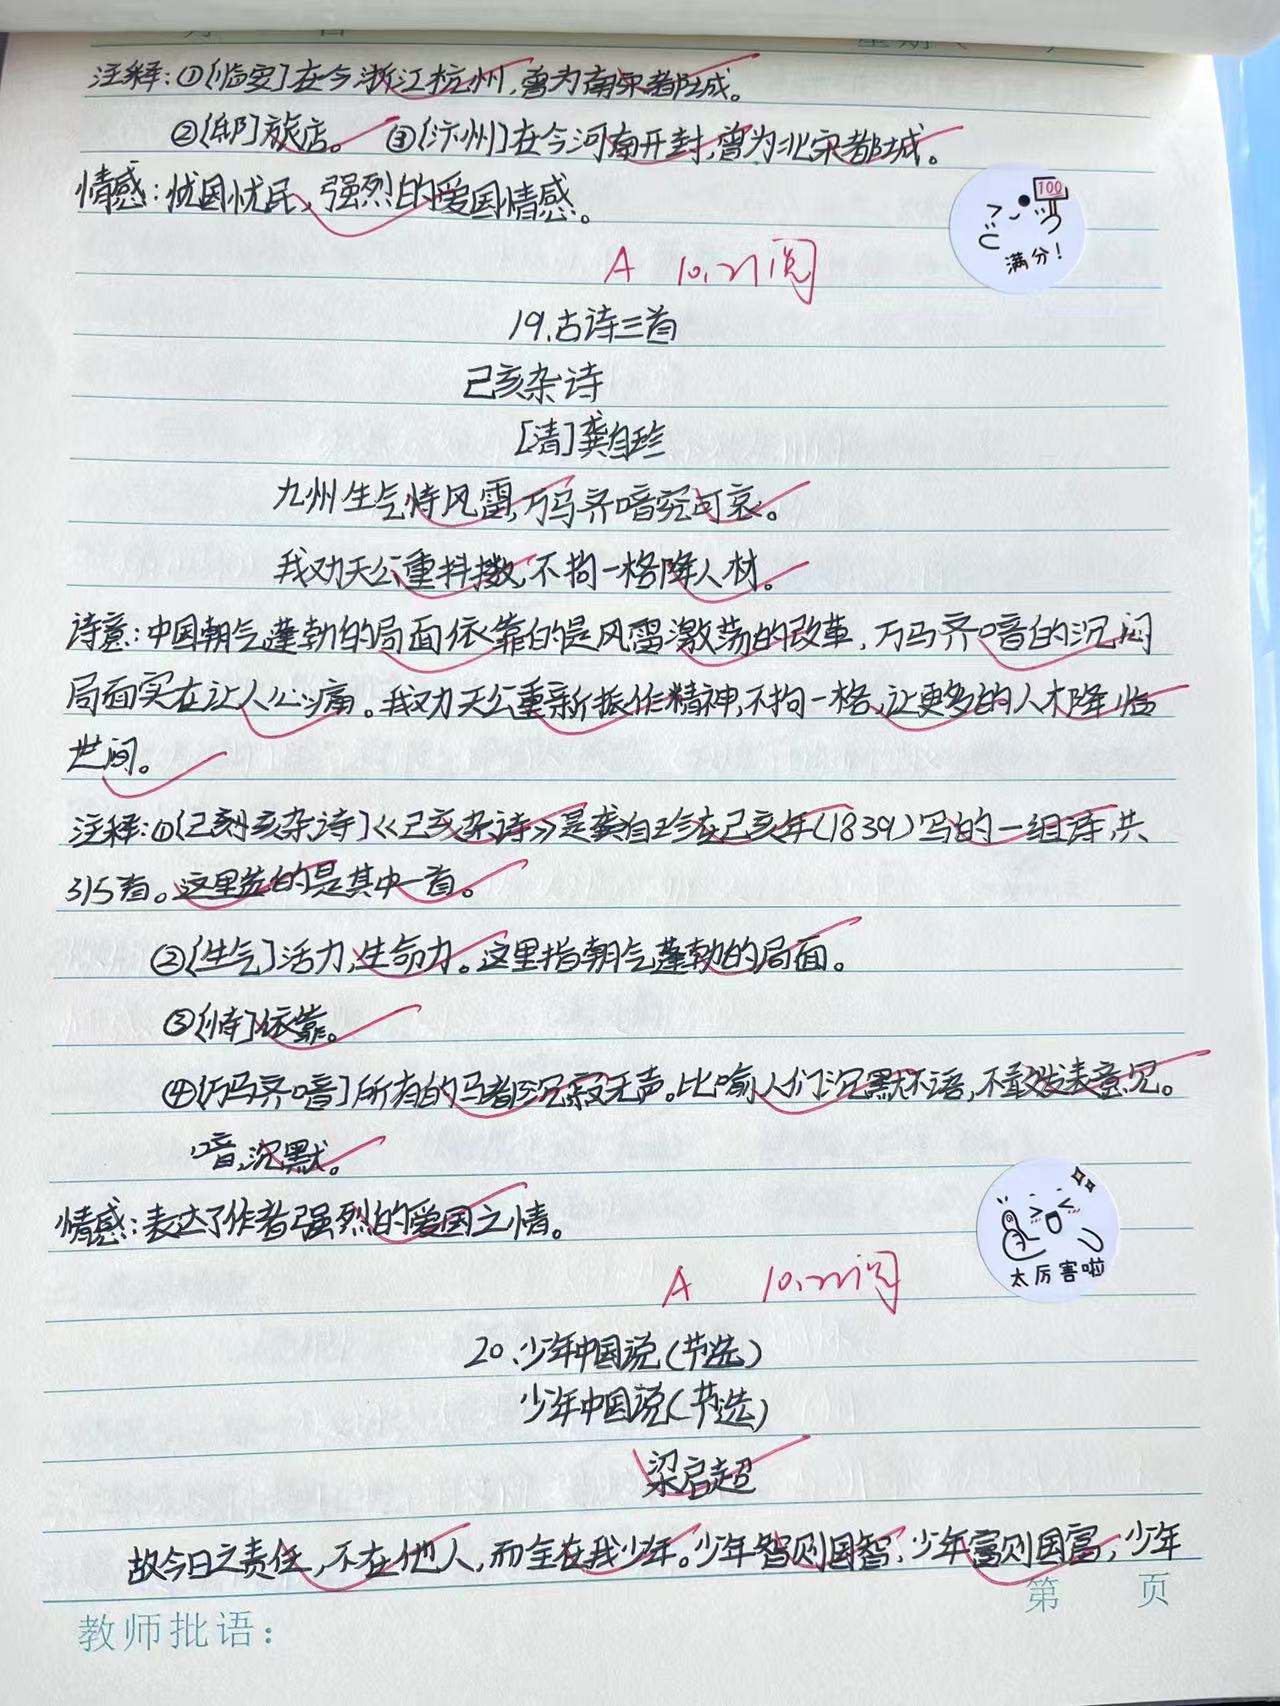 注释:①[临安]在今浙江杭州,曾为南宋都城。
②[邸]旅店。 ③[汴州]在今河南开封,曾为北宋都城。
情感:忧国忧民、强烈的爱国情感。
100
满分!
A 10.21阅
19.古诗三首
己亥杂诗
[清]龚自珍
九州生气恃风雷,万马齐喑究可哀。
我劝天公重抖擞,不拘一格降人材。
诗意:中国朝气蓬勃的局面依靠的是风雷激荡的改革,万马齐喑的沉闷
局面实在让人心痛。我劝天公重新振作精神,不拘一格,让更多的人才降临
世间。
注释:①[己亥杂诗]《己亥杂诗》是龚自珍在己亥年(1839)写的一组诗,共
315首。这里选的是其中一首。
②[生气]活力,生命力。这里指朝气蓬勃的局面。
③[恃]依靠。
④[万马齐喑]所有的马都沉寂无声。比喻人们沉默不语,不敢发表意见。
喑,沉默。
情感:表达了作者强烈的爱国之情。
太厉害啦
A 10.22阅
20、少年中国说(节选)
少年中国说(节选)
梁启超
故今日之责任,不在他人,而全在我少年。少年智则国智,少年富则国富;少年
第 页
教师批语: